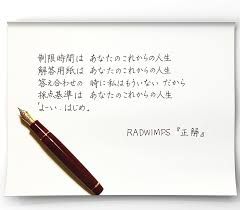 制限時間は あなたのこれからの人生
解答用紙は あなたのこれからの人生
答え合わせの 時に私はもういない だから
採点基準は あなたのこれからの人生
"よーい、はじめ。"
RADWIMPS 『正解』